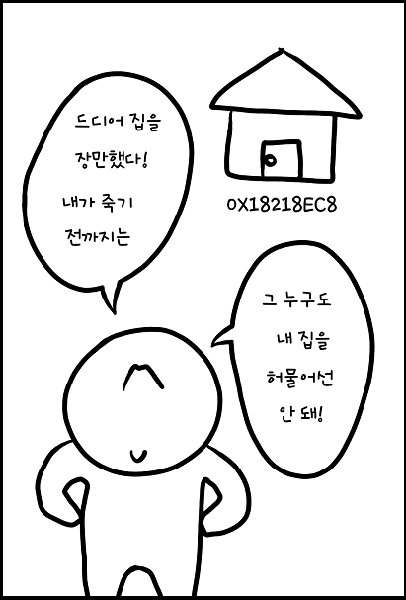 드디어 집을
장만했다!
내가 죽기
전까지는
0X18218EC8
그 누구도
내 집을
허물어선
안 돼!